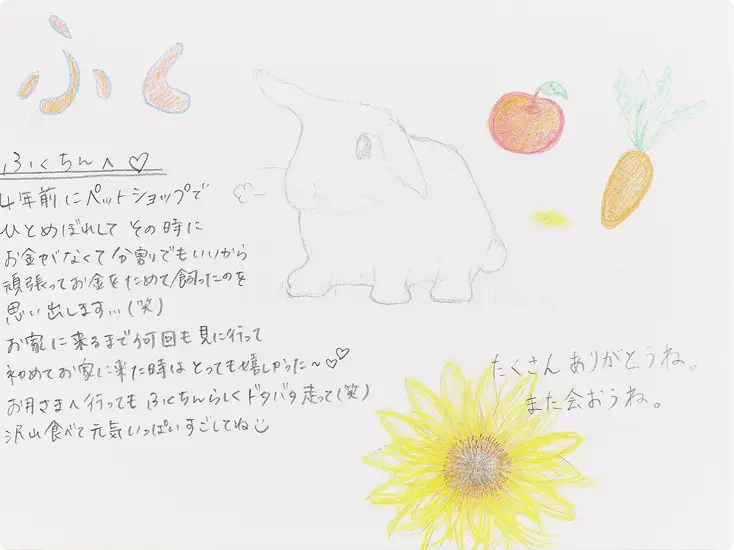 ふく
ふくちんへ♡
4年前にペットショップで
ひとめぼれして その時に
お金がなくて分割でもいいから
頑張ってお金をためて飼ったのを
思い出します…(笑)
お家に来るまで何回も見に行って
初めてお家に来た時はとっても嬉しかった〜♡♡
お月さまへ行ってもふくちんらしくドタバタ走って(笑)
沢山食べて元気いっぱいすごしてね☺
たくさんありがとうね。
また会おうね。